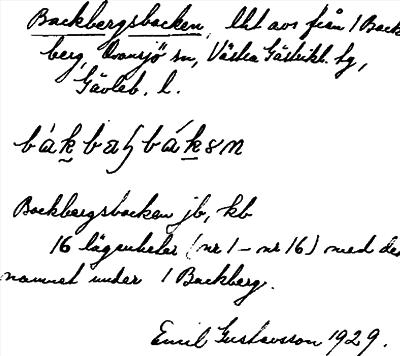 Backbergsbacken, lht avs från 1 Back
berg, Ovansjö sn, Västra Gästrikl. tg,
Gävleb. l.
Backbergsbacken jb, kb
16 lägenheter (nr 1 – nr 16) med de
namnet under 1 Backberg.
Emil Gustavsson 1929.